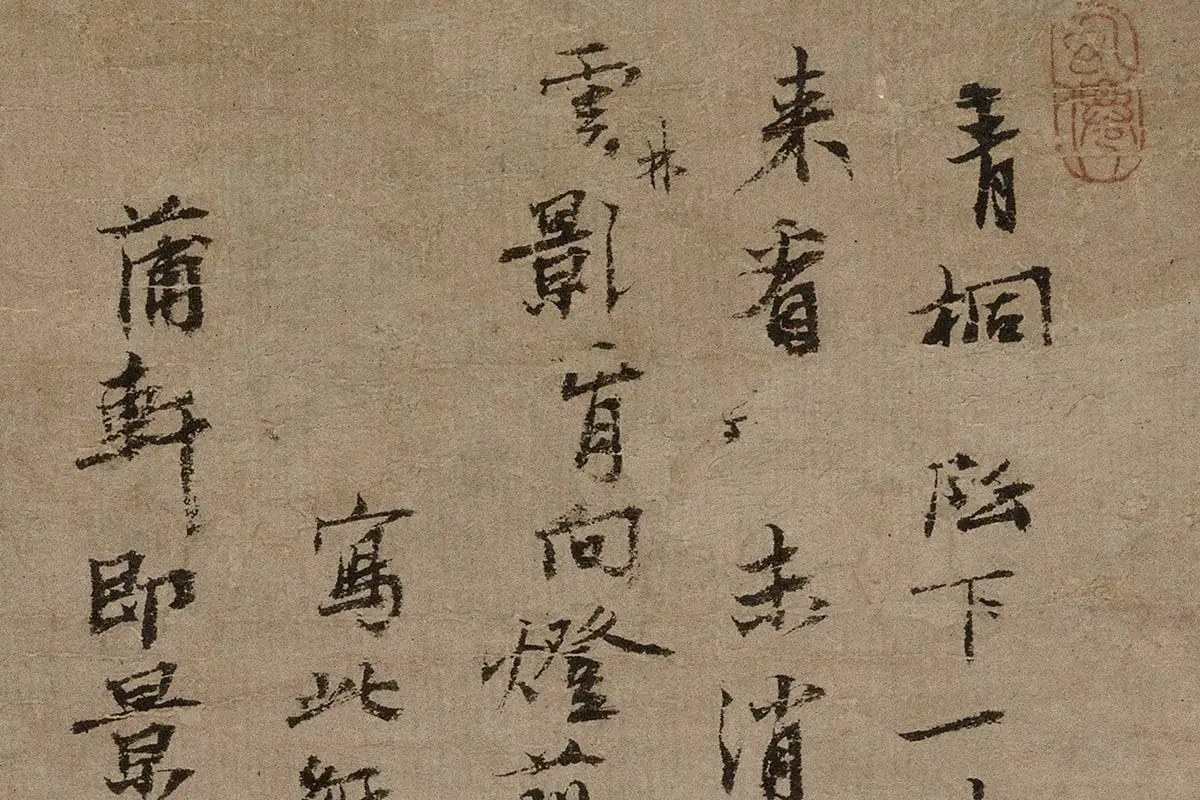 青桐陰下一
来看未消
雲林影肯向燈前
寫此
蒲軒即景